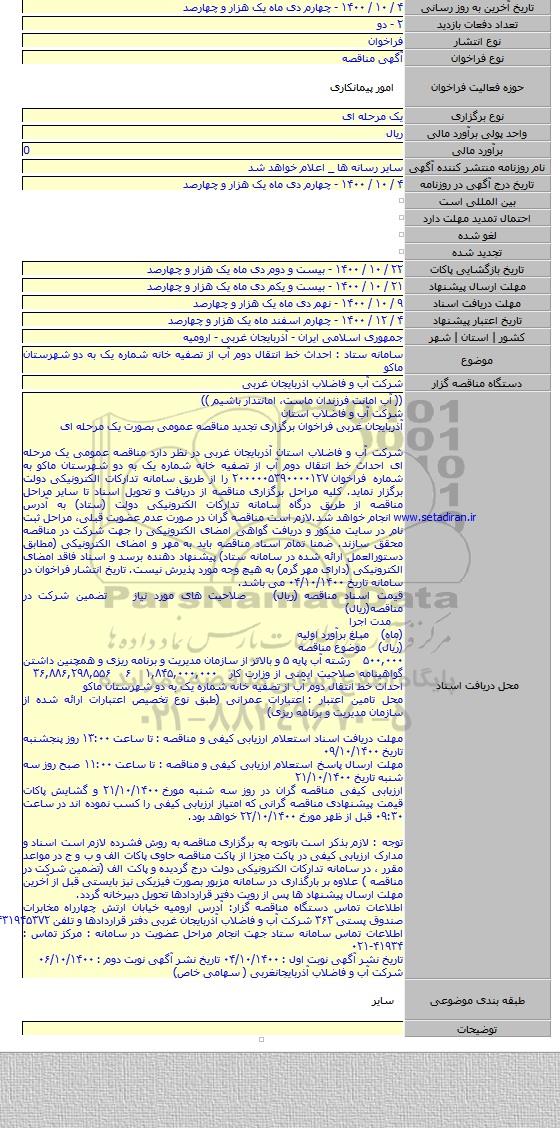 تاریخ آخرین به روز رسانی ۴ / ۱۰ / ۱۴۰۰ - چهارم دی ماه یک هزار و چهارصد
تعداد دفعات بازدید ۲ - دو
نوع انتشار فراخوان
نوع فراخوان آگهی مناقصه
حوزه فعالیت فراخوان امور پیمانکاری
نوع برگزاری یک مرحله ای
واحد پولی برآورد مالی ریال
برآورد مالی 0
نام روزنامه منتشر کننده آگهی سایر رسانه ها _ اعلام خواهد شد
تاریخ درج آگهی در روزنامه ۴ / ۱۰ / ۱۴۰۰ - چهارم دی ماه یک هزار و چهارصد
بین المللی است
احتمال تمدید مهلت دارد
لغو شده
تجدید شده
تاریخ بازگشایی پاکات ۲۲ / ۱۰ / ۱۴۰۰ - بیست و دوم دی ماه یک هزار و چهارصد
مهلت ارسال پیشنهاد ۲۱ / ۱۰ / ۱۴۰۰ - بیست و یکم دی ماه یک هزار و چهارصد
مهلت دریافت اسناد ۹ / ۱۰ / ۱۴۰۰ - نهم دی ماه یک هزار و چهارصد
تاریخ اعتبار پیشنهاد ۴ / ۱۲ / ۱۴۰۰ - چهارم اسفند ماه یک هزار و چهارصد
کشور | استان | شهر جمهوری اسلامی ایران - آذربایجان غربی - ارومیه
موضوع سامانه ستاد : احداث خط انتقال دوم آب از تصفیه خانه شماره یک به دو شهرستان
ماکو
دستگاه مناقصه گزار شرکت آب و فاضلاب آذربایجان غربی
محل دریافت اسناد
(( آب امانت فرزندان ماست، امانتدار باشیم ))
شرکت آب و فاضلاب استان
آذربایجان غربی فراخوان برگزاری تجدید مناقصه عمومی بصورت یک مرحله ای
شرکت آب و فاضلاب استان آذربایجان غربی در نظر دارد مناقصه عمومی یک مرحله
ای احداث خط انتقال دوم آب از تصفیه خانه شماره یک به دو شهرستان ماکو به
شماره فراخوان ۲۰۰۰۰۰۵۳۹۰۰۰۰۱۲۷ را از طریق سامانه تدارکات الکترونیکی دولت
برگزار نماید. کلیه مراحل برگزاری مناقصه از دریافت و تحویل اسناد تا سایر مراحل
مناقصه از طریق درگاه سامانه تدارکات الکترونیکی دولت (ستاد) به آدرس
www.setadiran.ir انجام خواهد شد.لازم است مناقصه گران در صورت عدم عضویت قبلی، مراحل ثبت
نام در سایت مذکور و دریافت گواهی امضای الکترونیکی را جهت شرکت در مناقصه
محقق سازند . ضمنا تمام اسناد مناقصه باید به مهر و امضای الکترونیکی (مطابق
دستورالعمل ارائه شده در سامانه ستاد) پیشنهاد دهنده برسد و اسناد فاقد امضای
الکترونیکی (دارای مهر گرم) به هیچ وجه مورد پذیرش نیست. تاریخ انتشار فراخوان در
سامانه تاریخ ۰۴/۱۰/۱۴۰۰ می باشد.
قیمت اسناد مناقصه (ریال) صلاحیت های مورد نیاز تضمین شرکت در
مناقصه(ریال)
مدت اجرا
(ماه) مبلغ برآورد اولیه
(ریال) موضوع مناقصه
۵۰۰,۰۰۰ رشته آب پایه ۵ و بالاتر از سازمان مدیریت و برنامه ریزی و همچنین داشتن
گواهینامه صلاحیت ایمنی از وزارت کار ۱,۸۴۵,۰۰۰,۰۰۰ ۶ ۳۶,۸۸۶,۲۹۸,۵۵۶
احداث خط انتقال دوم آب از تصفیه خانه شماره یک به دو شهرستان ماکو
محل تامین اعتبار : اعتبارات عمرانی (طبق نوع تخصیص اعتبارات ارائه شده از
سازمان مدیریت و برنامه ریزی)
مهلت دریافت اسناد استعلام ارزیابی کیفی و مناقصه : تا ساعت ۱۳:۰۰ روز پنجشنبه
تاریخ ۰۹/۱۰/۱۴۰۰
مهلت ارسال پاسخ استعلام ارزیابی کیفی و مناقصه : تا ساعت ۱۱:۰۰ صبح روز سه
شنبه تاریخ ۲۱/۱۰/۱۴۰۰
ارزیابی کیفی مناقصه گران در روز سه شنبه مورخ ۲۱/۱۰/۱۴۰۰ و گشایش پاکات
قیمت پیشنهادی مناقصه گرانی که امتیاز ارزیابی کیفی را کسب نموده اند در ساعت
۰۹:۳۰ قبل از ظهر مورخ ۲۲/۱۰/۱۴۰۰ خواهد بود.
توجه : لازم بذکر است باتوجه به برگزاری مناقصه به روش فشرده لازم است اسناد و
مدارک ارزیابی کیفی در پاکت مجزا از پاکت مناقصه حاوی پاکات الف و ب و ج در مواعد
مقرر ، در سامانه تدارکات الکترونیکی دولت درج گردیده و پاکت الف (تضمین شرکت در
مناقصه ) علاوه بر بارگذاری در سامانه مزبور بصورت فیزیکی نیز بایستی قبل از آخرین
مهلت ارسال پیشنهاد ها پس از رویت دفتر قراردادها تحویل دبیرخانه گردد.
اطلاعات تماس دستگاه مناقصه گزار: آدرس ارومیه خیابان ارتش چهارراه مخابرات
صندوق پستی ۳۶۳ شرکت آب و فاضلاب آذربایجان غربی دفتر قراردادها و تلفن
اطلاعات تماس سامانه ستاد جهت انجام مراحل عضویت در سامانه : مرکز تماس :
۰۲۱-۴۱۹۳۴
تاریخ نشر آگهی نوبت اول : ۰۴/۱۰/۱۴۰۰ تاریخ نشر آگهی نوبت دوم : ۰۶/۱۰/۱۴۰۰
شرکت آب و فاضلاب آذربایجانغربی ( سهامی خاص)
طبقه بندی موضوعی سایر
توضیحات
ParsNamadData
۰۲۱-۸۸۳۴۹۶۷۰-۵